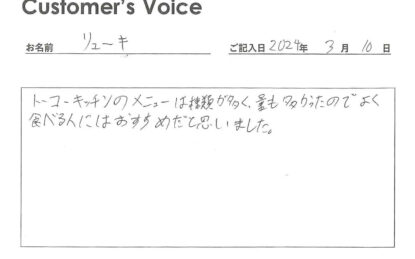 Customer's Voice
お名前 リューキ ご記入日 2024年 3 月 10 日
トーコーキッチンのメニューは種類が多く、量も多かったのでよく
食べる人にはおすすめだと思いました。